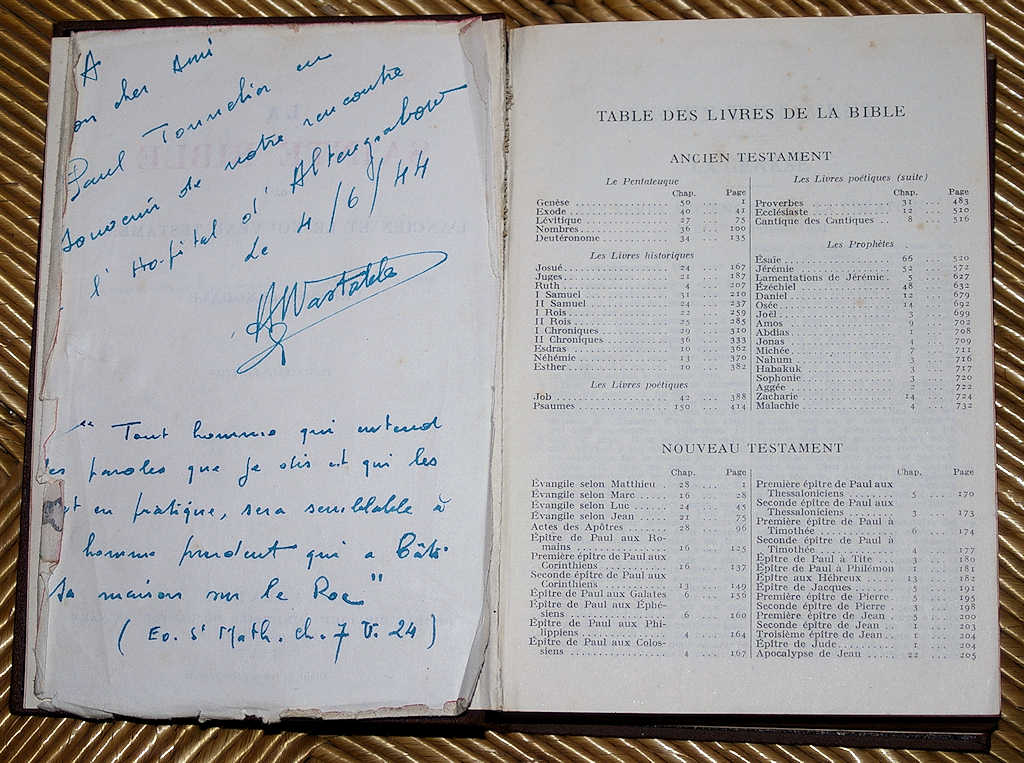 A
on cher Ami
Paul Tonnelier en
souvenir de notre rencontre
l'Hopital d'Altengrabow
Le 4/6/44
"Tout homme qui entend
les paroles que je dis et qui les
met en pratique, sera semblable à
homme prudent qui a bâti
sa maison sur le Roc"
(Ev. St Math. ch. 7 V. 24)
TABLE DES LIVRES DE LA BIBLE
ANCIEN TESTAMENT
Le Pentateuque
Chap. Page
Genèse 50 ... 1
Exode 40 ... 41
Lévitique 27 ... 75
Nombres 36 ... 100
Deutéronome 34 ... 135
Les Livres historiques
Josué 24 ... 167
Juges 21 ... 187
Ruth 4 ... 207
I Samuel 31 ... 210
II Samuel 24 ... 237
I Rois 22 ... 259
II Rois 25 ... 285
I Chroniques 29 ... 310
II Chroniques 36 ... 333
Esdras 10 ... 362
Néhémie 13 ... 370
Esther 10 ... 382
Les Livres poétiques
Job 42 ... 388
Psaumes 150 ... 414
Les Livres poétiques (suite)
Chap. Page
Proverbes 31 ... 483
Ecclésiaste 12 ... 510
Cantique des Cantiques 8 ... 516
Les Prophètes
Ésaïe 66 ... 520
Jérémie 52 ... 572
Lamentations de Jérémie. 5 ... 627
Ézéchiel 48 ... 632
Daniel 12 ... 679
Osée 14 ... 692
Joël 3 ... 699
Amos 9 ... 702
Abdias 1 ... 708
Jonas 4 ... 709
Michée 7 ... 711
Nahum 3 ... 716
Habakuk 3 ... 717
Sophonie 3 ... 720
Aggée 2 ... 722
Zacharie 14 ... 724
Malachie 4 ... 732
NOUVEAU TESTAMENT
Chap. Page
Évangile selon Matthieu . 28 ... 1
Évangile selon Marc 16 ... 28
Évangile selon Luc 24 ... 45
Évangile selon Jean 21 ... 75
Actes des Apôtres 28 ... 96
Épître de Paul aux Ro-
mains 16 ... 125
Première épître de Paul aux
Corinthiens 16 ... 137
Seconde épître de Paul aux
Corinthiens 13 ... 149
Épître de Paul aux Galates 6 ... 156
Épître de Paul aux Éphé-
siens 6 ... 160
Épître de Paul aux Phi-
lippiens 4 ... 164
Épître de Paul aux Colos-
siens 4 ... 167
Chap. Page
Première épître de Paul aux
Thessaloniciens 5 ... 170
Seconde épître de Paul aux
Thessaloniciens 3 ... 173
Première épître de Paul à
Timothée 6 ... 174
Seconde épître de Paul à
Timothée 4 ... 177
Épître de Paul à Tite 3 ... 180
Épître de Paul à Philémon 1 ... 181
Épître aux Hébreux 13 ... 182
Épître de Jacques 5 ... 191
Première épître de Pierre. 5 ... 195
Seconde épître de Pierre . 3 ... 198
Première épître de Jean .. 5 ... 200
Seconde épître de Jean .. 1 ... 203
Troisième épître de Jean .. 1 ... 204
Épître de Jude 1 ... 204
Apocalypse de Jean 22 ... 205